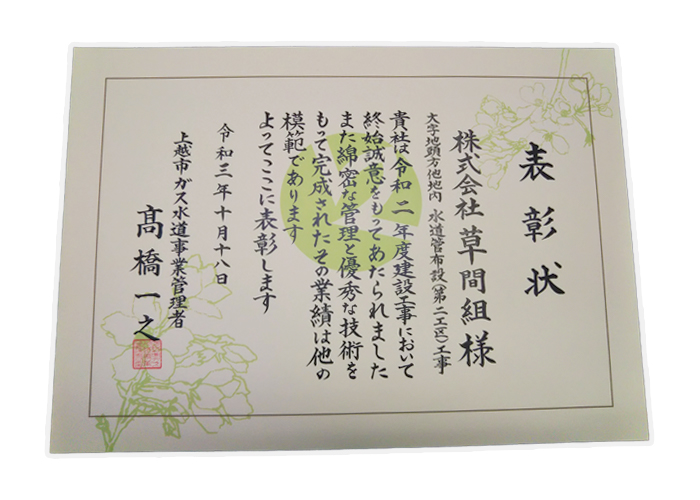 表彰状
株式会社 草間組 様
大字地頭方他地内 水道管布設(第二工区)工事
貴社は令和二年度建設工事において
終始誠意をもってあたられました
また綿密な管理と優秀な技術を
もって完成されたその業績は他の
模範であります
よってここに表彰します
令和三年十月十八日
上越市ガス水道事業管理者
髙橋一之